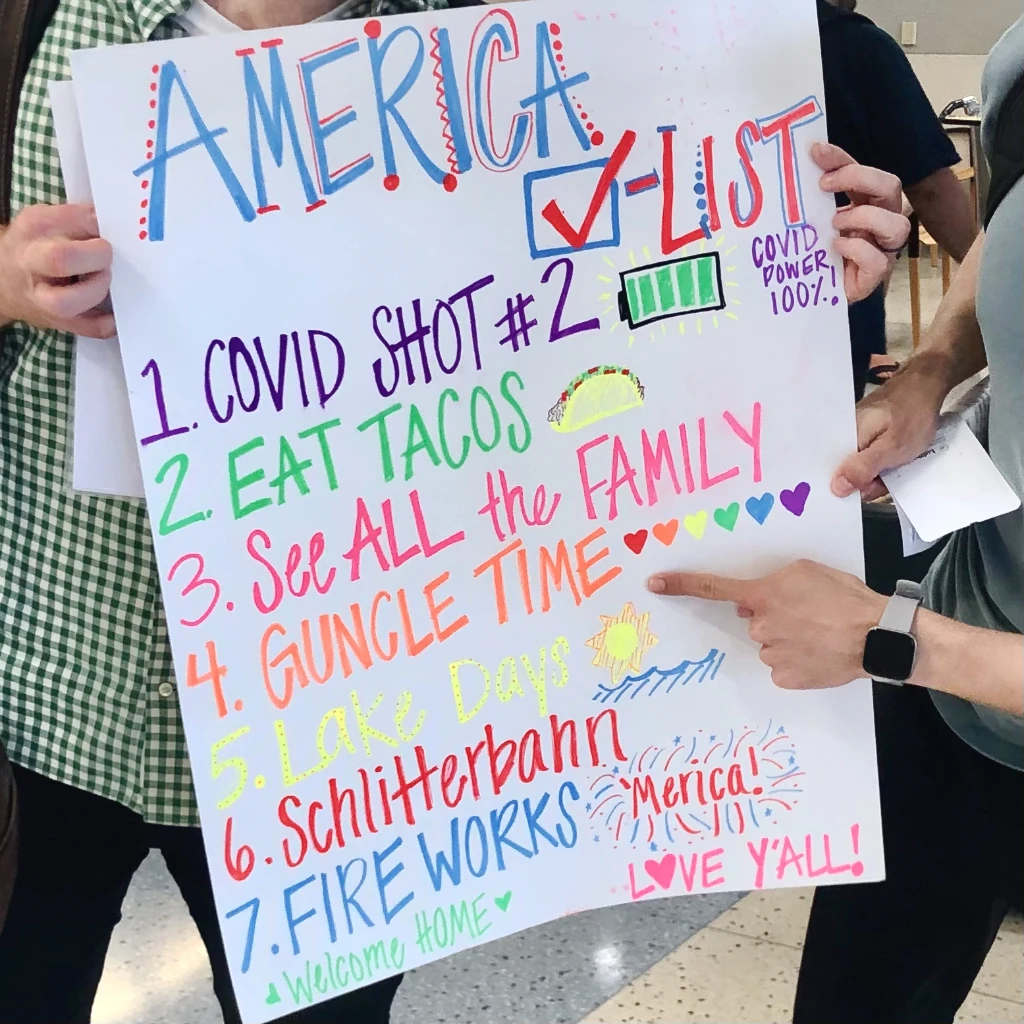 AMERICA
✓-LIST
COVID
POWER
100%!
1. COVID SHOT #2
2. EAT TACOS
3. See ALL the FAMILY
4. GUNCLE TIME
5. Lake Days
6. Schlitterbahn
'Merica!
7. FIREWORKS
L♥VE Y'ALL!
Welcome HOME